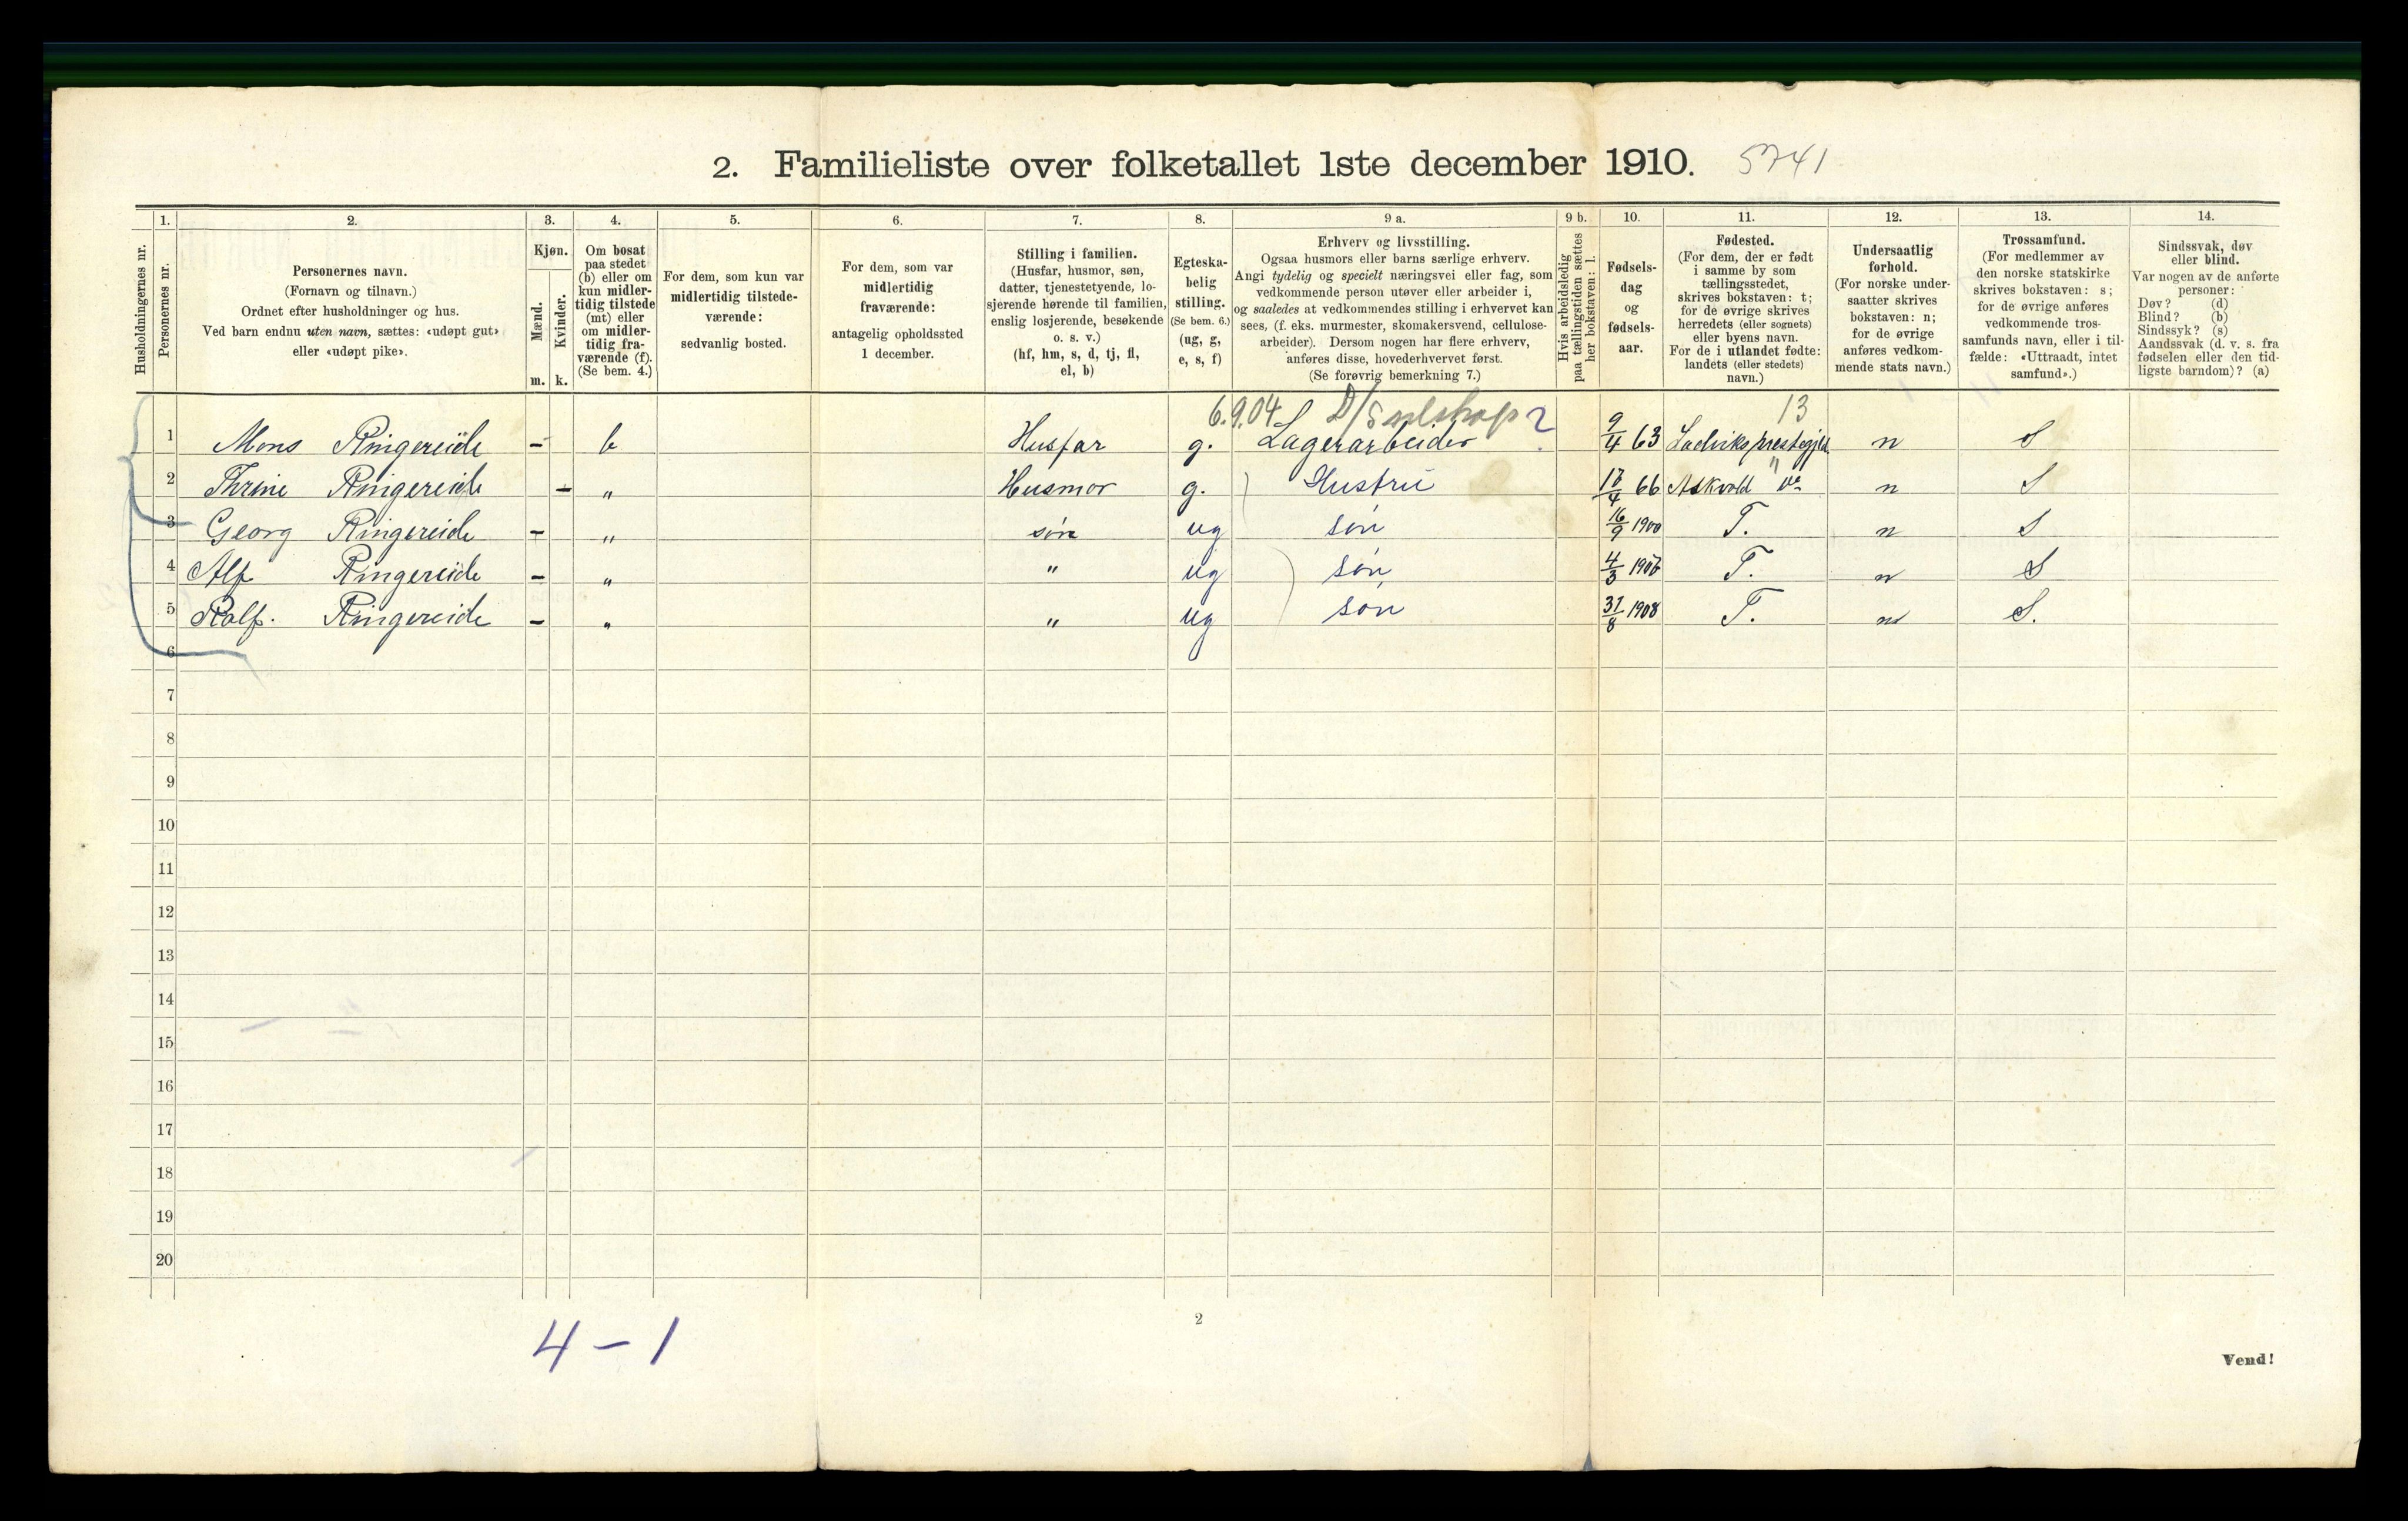 2. Familieliste over folketallet 1ste december 1910. 5741
Husholdningernes nr.
1.
Personernes nr.
2.
Personernes navn.
(Fornavn og tilnavn.)
Ordnet efter husholdninger og hus.
Ved barn endnu uten navn, sættes: «udøpt gut»
eller «udøpt pike».
3.
Kjøn.
Mænd.
Kvinder.
m. k.
4.
Om bosat
paa stedet
(b) eller om
kun midler-
tidig tilstede
(mt) eller
om midler-
tidig fra-
værende (f).
(Se bem. 4.)
5.
For dem, som kun var
midlertidig tilstede-
værende:
sedvanlig bosted.
6.
For dem, som var
midlertidig
fraværende:
antagelig opholdssted
1 december.
7.
Stilling i familien.
(Husfar, husmor, søn,
datter, tjenestetyende, lo-
sjerende hørende til familien,
enslig losjerende, besøkende
o. s. v.)
(hf, hm, s, d, tj, fl,
el, b)
8.
Egteska-
belig
stilling.
(Se bem. 6.)
(ug, g,
e, s, f)
9 a.
Erhverv og livsstilling.
Ogsaa husmors eller barns særlige erhverv.
Angi tydelig og specielt næringsvei eller fag, som
vedkommende person utøver eller arbeider i,
og saaledes at vedkommendes stilling i erhvervet kan
sees, (f. eks. murmester, skomakersvend, cellulose-
arbeider). Dersom nogen har flere erhverv,
anføres disse, hovederhvervet først.
(Se forøvrig bemerkning 7.)
9 b.
Hvis arbeidsledig
paa tællingstiden sættes
her bokstaven: l.
10.
Fødsels-
dag
og
fødsels-
aar.
11.
Fødested.
(For dem, der er født
i samme by som
tællingsstedet,
skrives bokstaven: t;
for de øvrige skrives
herredets (eller sognets)
eller byens navn.
For de i utlandet fødte:
landets (eller stedets)
navn.)
12.
Undersaatlig
forhold.
(For norske under-
saatter skrives
bokstaven: n;
for de øvrige
anføres vedkom-
mende stats navn.)
13.
Trossamfund.
(For medlemmer av
den norske statskirke
skrives bokstaven: s;
for de øvrige anføres
vedkommende tros-
samfunds navn, eller i til-
fælde: «Uttraadt, intet
samfund».)
14.
Sindssvak, døv
eller blind.
Var nogen av de anførte
personer:
Døv? (d)
Blind? (b)
Sindssyk? (s)
Aandssvak (d. v. s. fra
fødselen eller den tid-
ligste barndom)? (a)
6.9.04 13
1 Mons Ringereide – b Husfar g. Lagerarbeider 9/4 63 Ladviks prestegjeld n S
2 Thrine Ringereide – " Husmor g. Hustru 18/4 66 Askvold " n S
3 Georg Ringereide – " søn ug søn 16/9 1900 T. n S
4 Alf Ringereide – " " ug søn 4/3 1906 T. n S
5 Ralf. Ringereide – " " ug søn 31/8 1908 T. n S.
6
7
8
9
10
11
12
13
14
15
16
17
18
19
20
2
4 – 1
Vend!